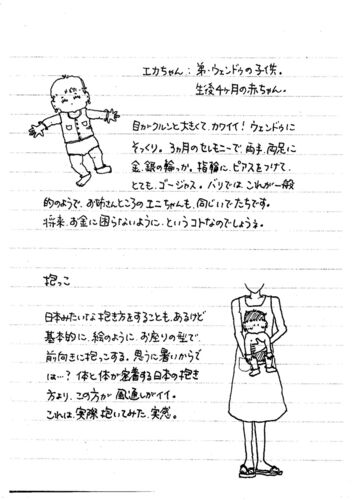 エカちゃん：弟・ウェンドゥの子供。
生後4ヶ月の赤ちゃん。
目がクルンと大きくて、カワイイ！ウェンドゥに
そっくり。3ヵ月のセレモニーで、両手、両足に
金、銀の輪っか。指輪に、ピアスをつけて、
とても、ゴージャス。バリでは、これが一般
的のようで、お姉さんところのエニちゃんも、同じいでたちです。
将来、お金に困らないように、というコトなのでしょうネ。
抱っこ
日本みたいな抱き方をすることも、あるけど
基本的に、絵のように、お座りの型で、
前向きに抱っこする。思うに暑いからで
は…？体と体が密着する日本の抱き
方より、この方が風通しがイイ。
これは、実際抱いてみた、実感。